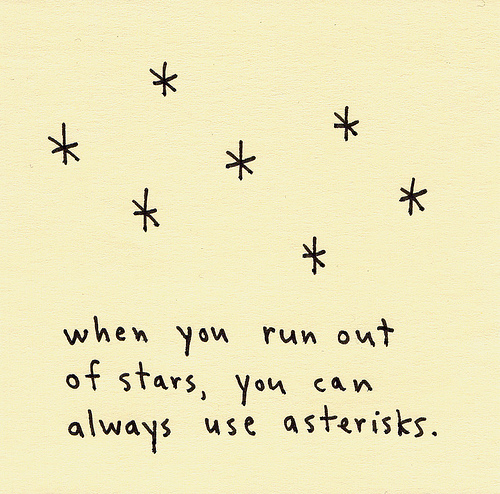 when you run out
of stars, you can
always use asterisks.